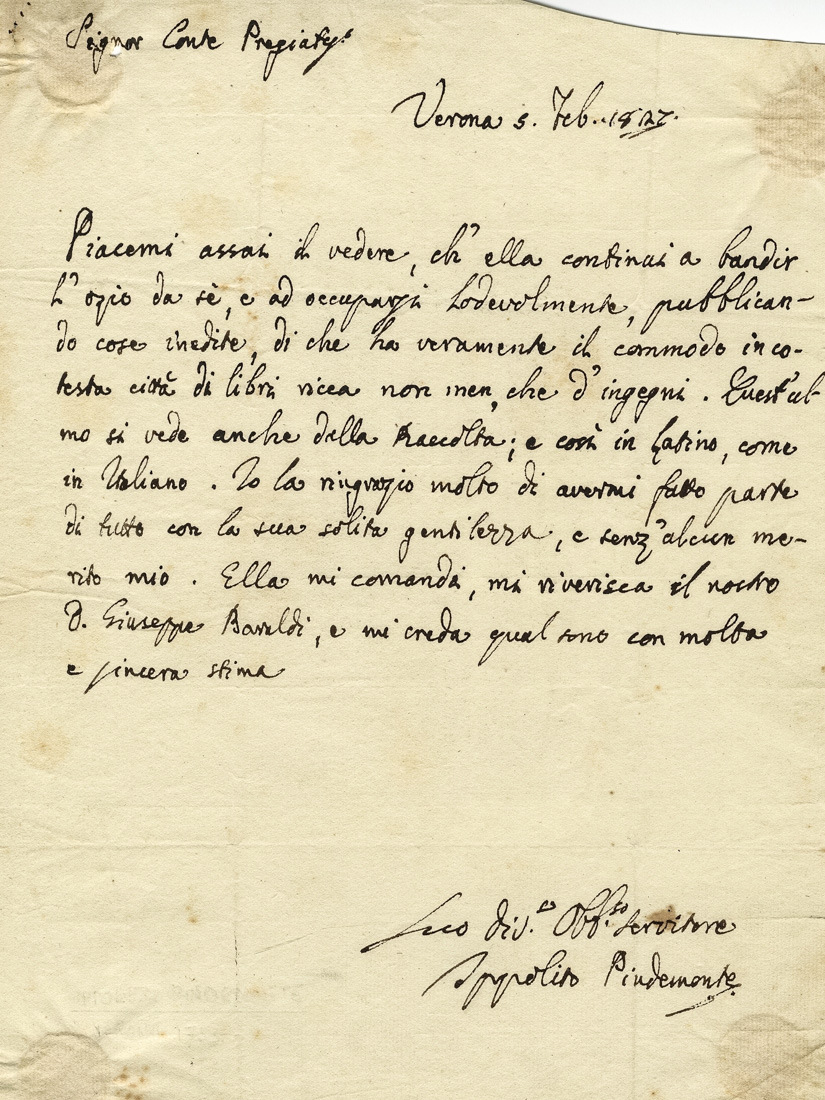 Signor Conte Pregiatis.
Verona 5. Feb. 1827.
Piacemi assai il vedere, ch' ella continui a bandir
l' ozio da sè, e ad occuparsi lodevolmente, pubblican-
do cose inedite, di che ha veramente il commodo in co-
testa città di libri ricca non men, che d' ingegni. Quest' ul-
mo si vede anche dalla Raccolta; e così in Latino, come
in Italiano. Io la ringrazio molto di avermi fatto parte
di tutto con la sua solita gentilezza, e senz' alcun me-
rito mio. Ella mi comandi, mi riverisca il nostro
D. Giuseppe Baraldi, e mi creda qual sono con molta
e sincera stima
Suo div.mo Obb.mo servitore
Ippolito Pindemonte